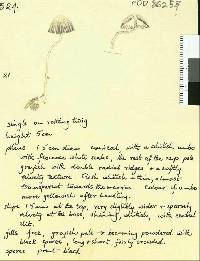 single on rotting twig
height 5cm
pileus 1.5cm diam conical, with a whitish umbo
with flocculose white scales, the rest of the cap pale
greyish with double radial ridges + a softly
velvety texture. Flesh whitish & thin, almost
transparent towards the margin. Colour of umbo
more yellowish after handling.
stipe 1.5mm at the top, very slightly wider + sparsely
velvety at the base, shining, whitish, with central
slit.
gills free, greyish pale → becoming powdered with
black spores, long + short fairly crowded.
spore print black